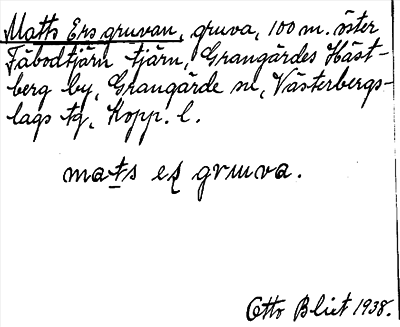 Matts Ers gruvan, gruva, 100 m. öster
Fäbodtjärn tjärn, Grangärdes Häst-
berg by, Grangärde sn, Västerbergs-
lags tg, Kopp. l.
mats es gruva.
Otto Blixt 1938.